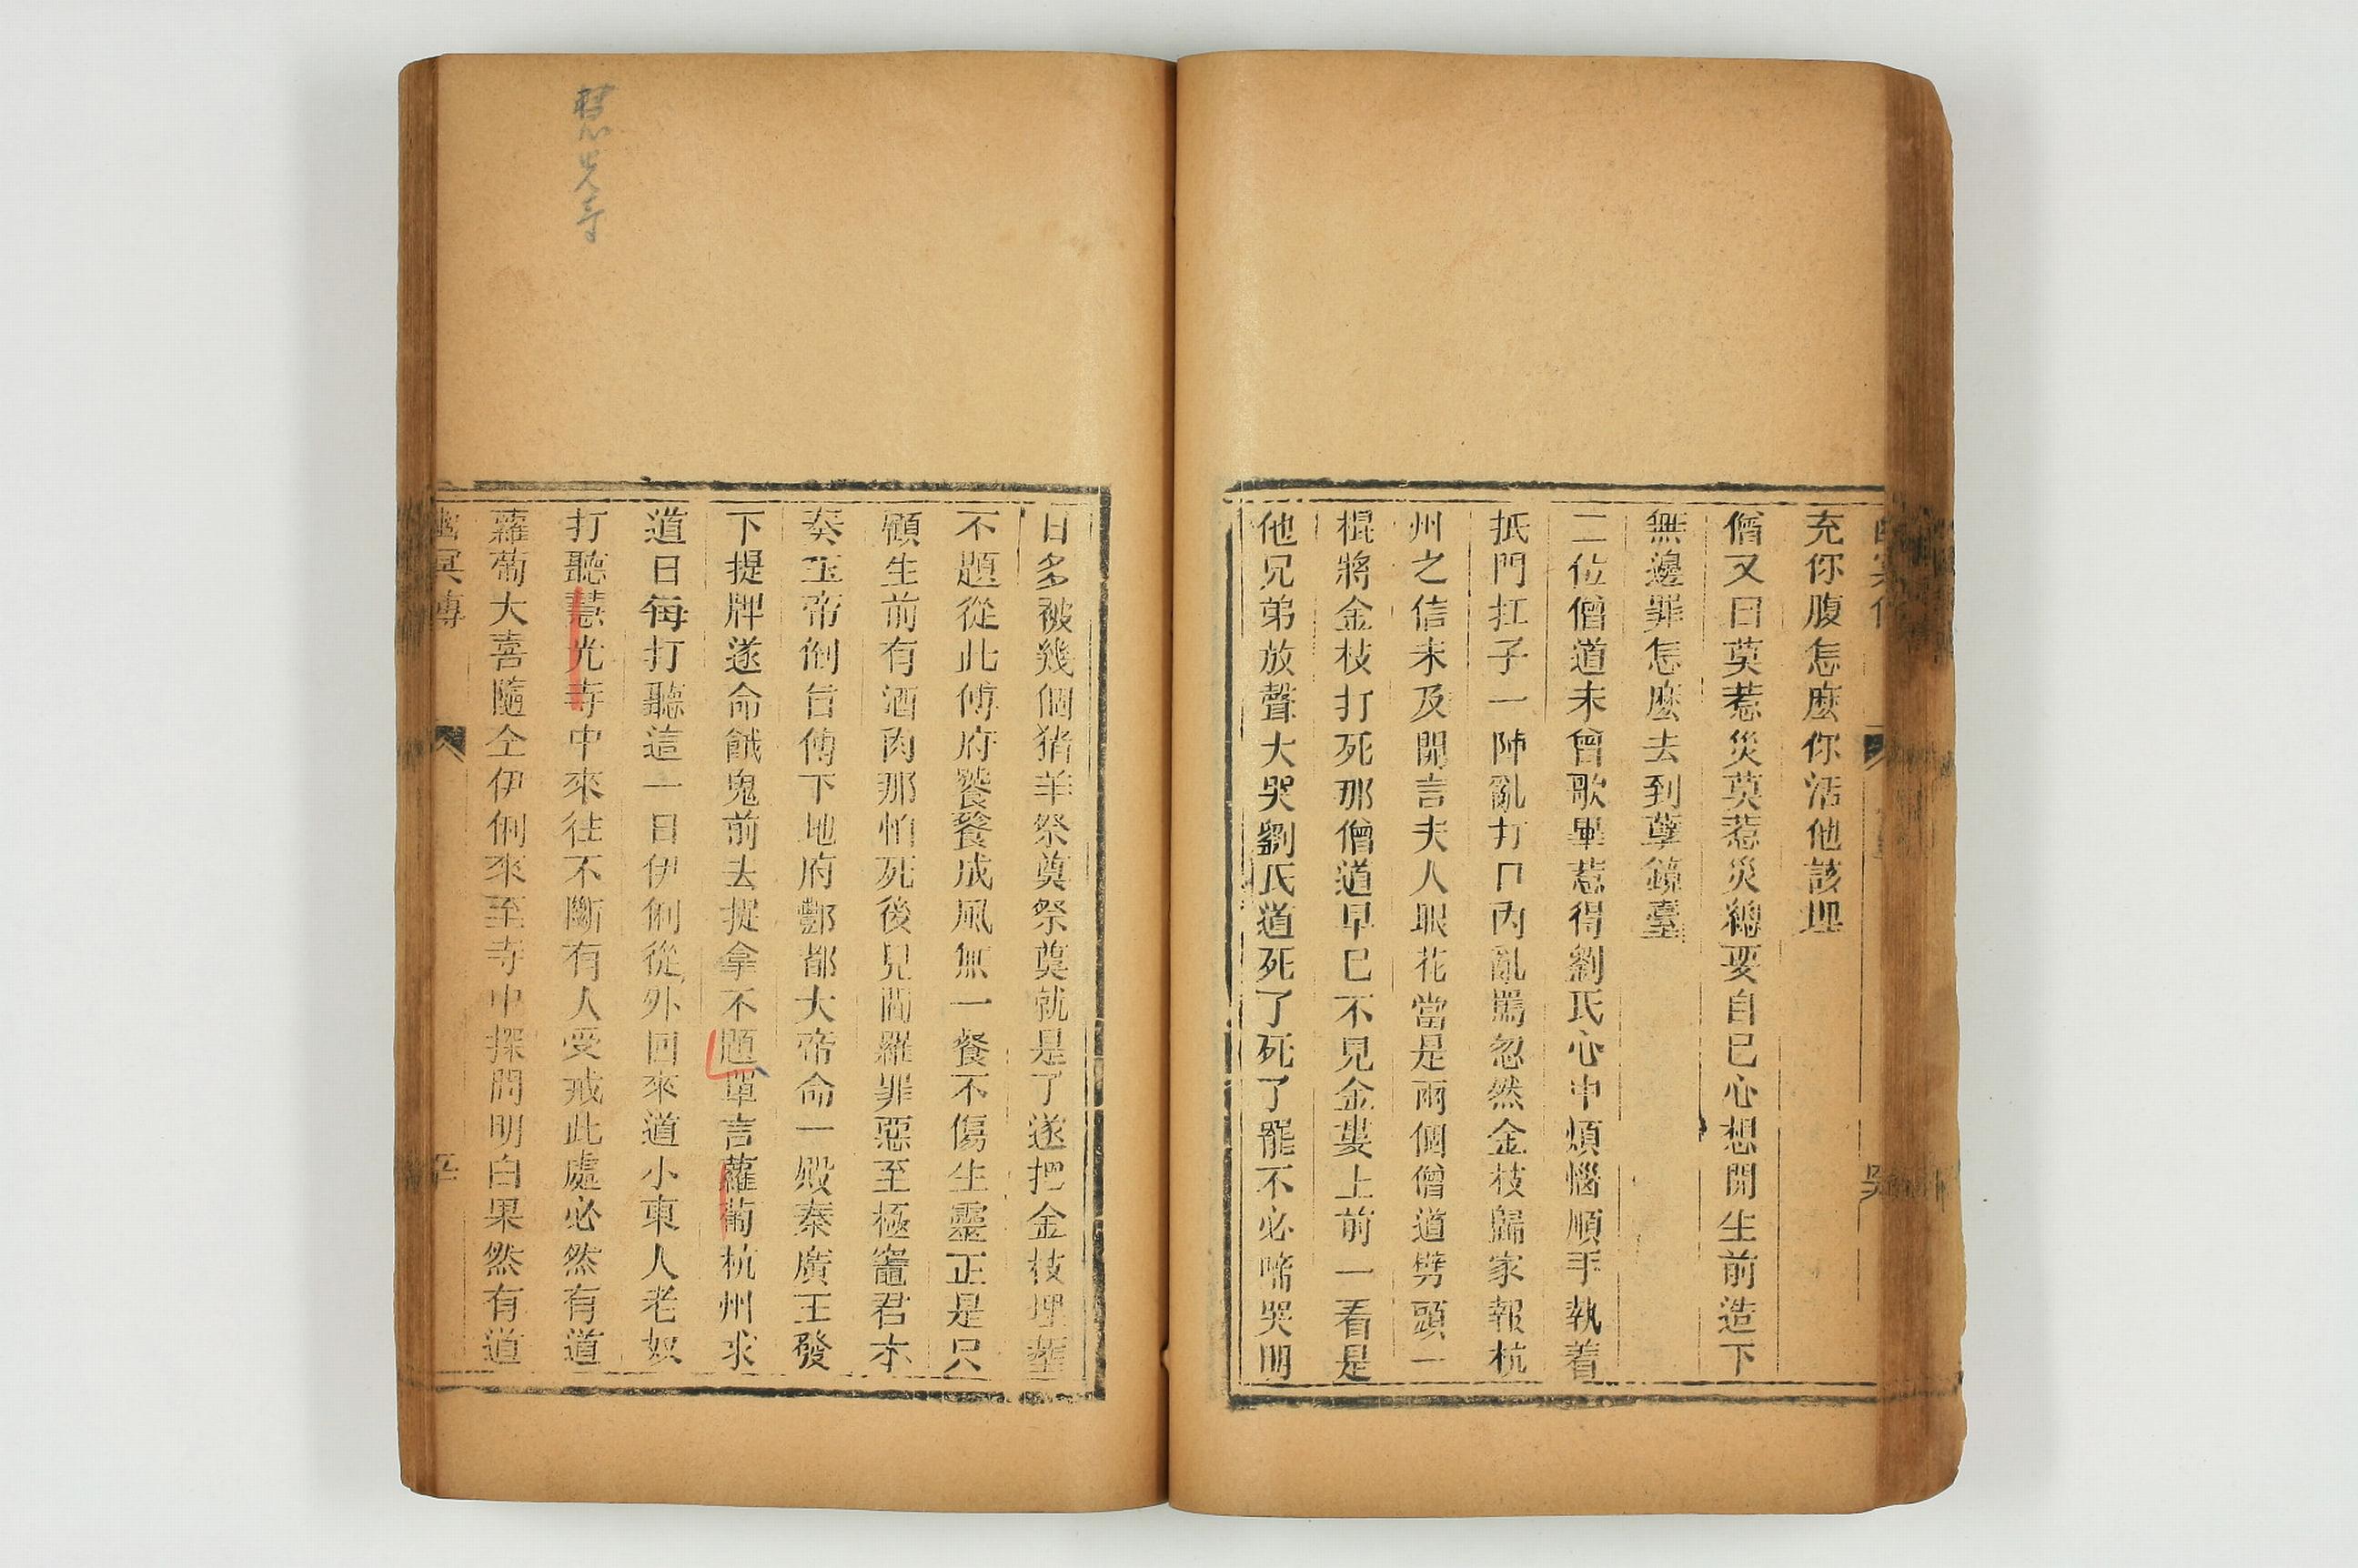 充你腹怎麽你活他該埋
僧又曰莫惹災莫惹災緫要自己心想開生前造下
無邊罪怎麽去到孽鏡臺
二位僧道未曾歌畢惹得劉氏心中煩惱順手執着
抵門扛子一陣亂打口内亂罵忽然金枝歸家報杭
州之信未及開言夫人眼花當是兩個僧道劈頭一
棍將金枝打死那僧道早已不見金婁上前一看是
他兄弟放聲大哭劉氏道死了死了罷不必啼哭明
日多被幾個猪羊祭奠祭奠就是了遂把金枝埋葬
不題從此傅府饕餮成風無一餐不傷生靈正是只
顧生前有酒肉那怕死後見閻羅罪惡至極竈君本
奏玉帝俐旨傳下地府酆都大帝命一殿秦廣王發
下提牌遂命餓鬼前去捉拿不題單言蘿蔔杭州求
道日每打聽這一日伊俐從外回來道小東人老奴
打聽慧光寺中來往不斷有人受戒此處必然有道
蘿蔔大喜隨仝伊俐來至寺中探問明白果然有道
幽冥傳
慧光寺